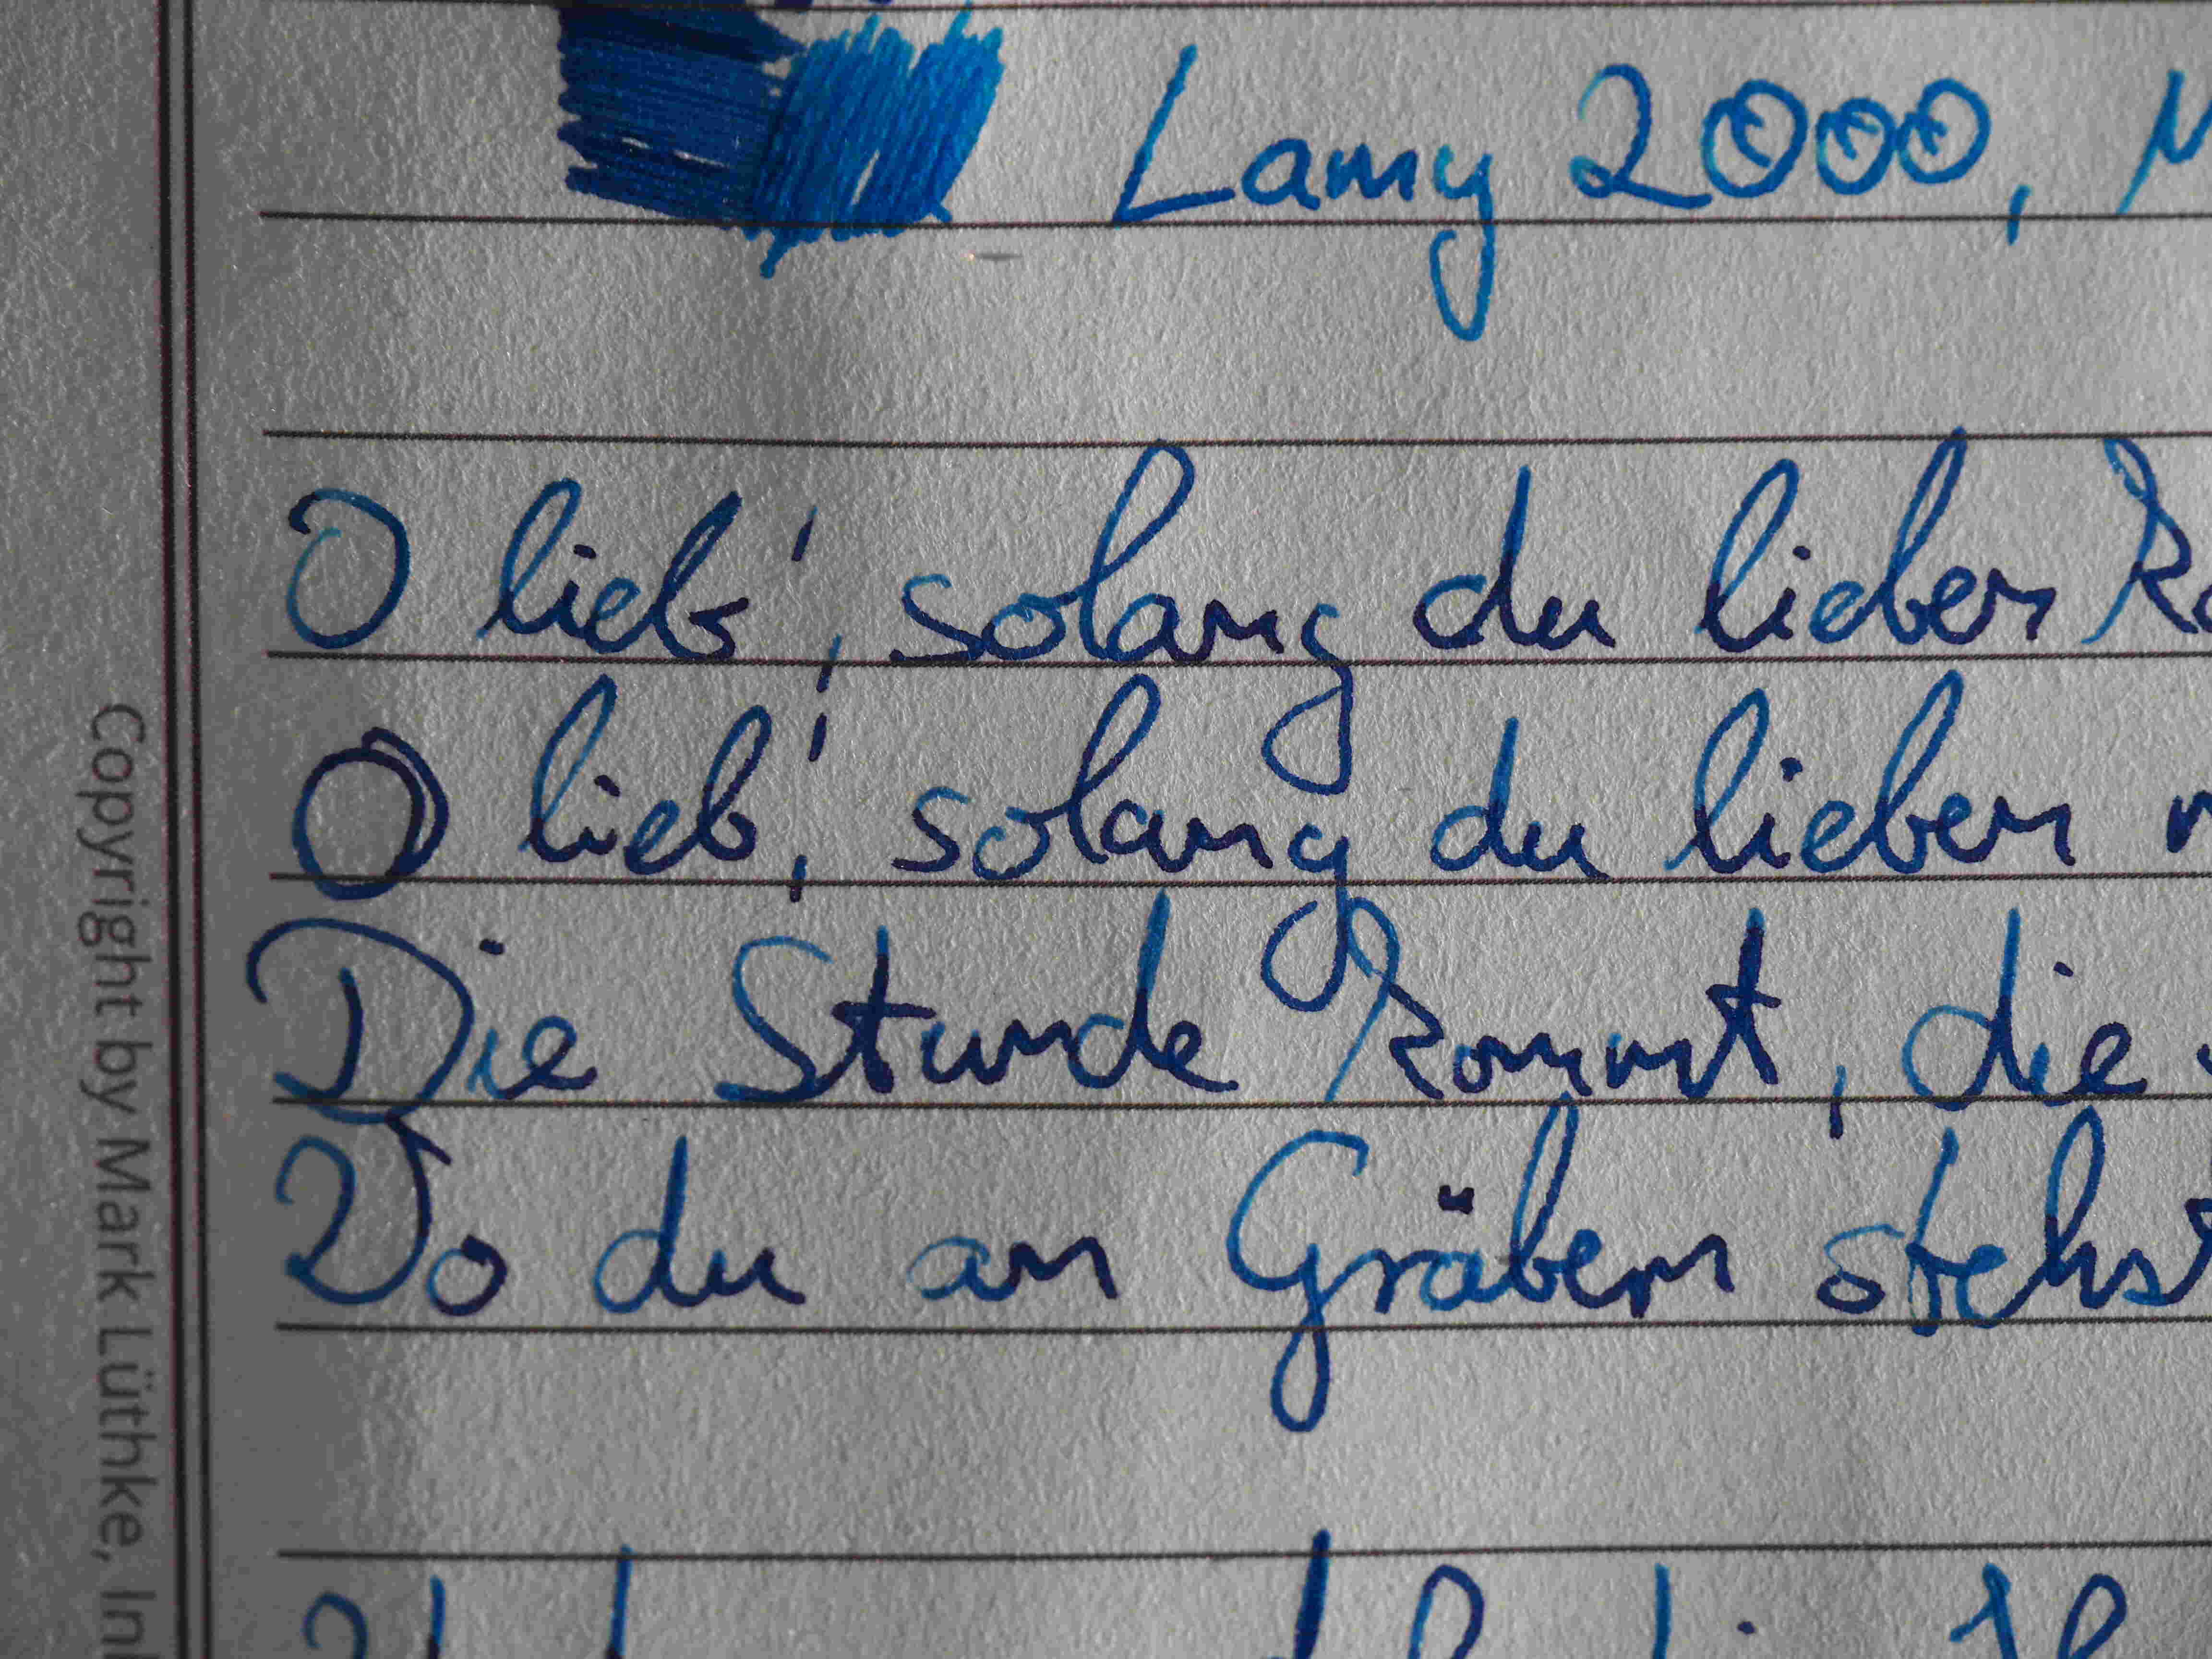 Lamy 2000, M
O lieb', solang du lieben
O lieb', solang du lieben
Die Stunde kommt, die
Wo du an Gräbern stehst
Copyright by Mark Lüthke,